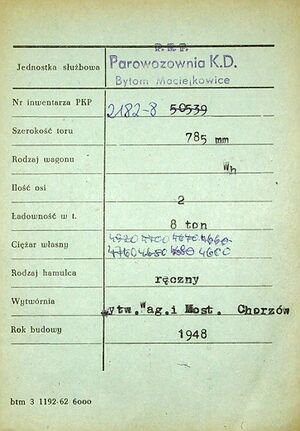 P.K.P.
Jednostka służbowa Parowozownia K.D.
Bytom Maciejkowice
Nr inwentarza PKP 2182-8 50539
Szerokość toru 785 mm
Rodzaj wagonu Wh
Ilość osi 2
Ładowność w t. 8 ton
4820 4700 4670 4660
Ciężar własny 4760 4680 4600
Rodzaj hamulca ręczny
Wytwórnia Wytw.Wag.i Most. Chorzów
Rok budowy 1948
btm 3 1192-62 6000